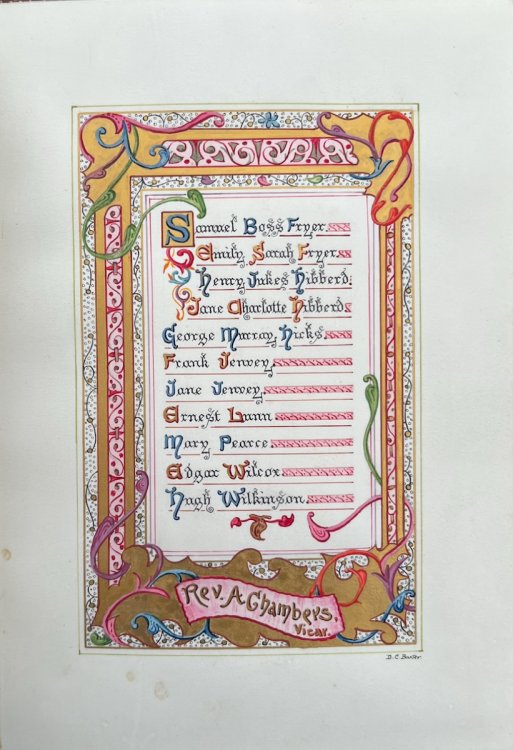 Samuel Boss Fryer
Emily Sarah Fryer
Henry Jukes Hibberd
Jane Charlotte Hibberd
George Murray Hicks
Frank Jenvey
Jane Jenvey
Ernest Lunn
Mary Pearce
Edgar Wilcox
Hugh Wilkinson
Rev. A. Chambers,
Vicar.
D. C. Baxter.